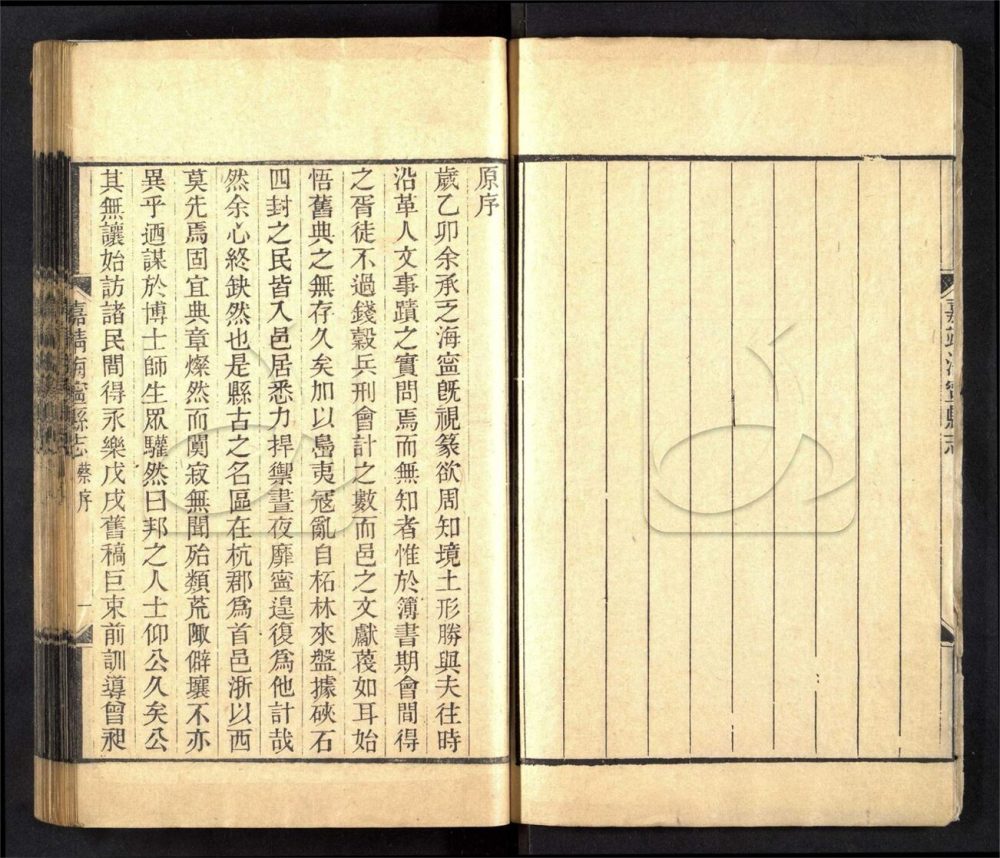 嘉靖海寧縣志
原序
歲乙卯余承乏海寧旣視篆欲周知境土形勝與夫往時
沿革人文事蹟之實問焉而無知者惟於簿書期會間得
之胥徒不過錢穀兵刑會計之數而邑之文獻蔑如耳始
悟舊典之無存久矣加以島夷冦亂自柘林來盤據硤石
四封之民皆入邑居悉力捍禦晝夜靡寧遑復爲他計哉
然余心終缺然也是縣古之名區在杭郡爲首邑浙以西
莫先焉固宜典章燦然而闃寂無聞殆類荒陬僻壤不亦
異乎迺謀於博士師生眾驩然曰邦之人士仰公久矣公
其無讓始訪諸民間得永樂戊戌舊稿巨束前訓導曾昶
嘉靖海寧縣志 蔡序 一